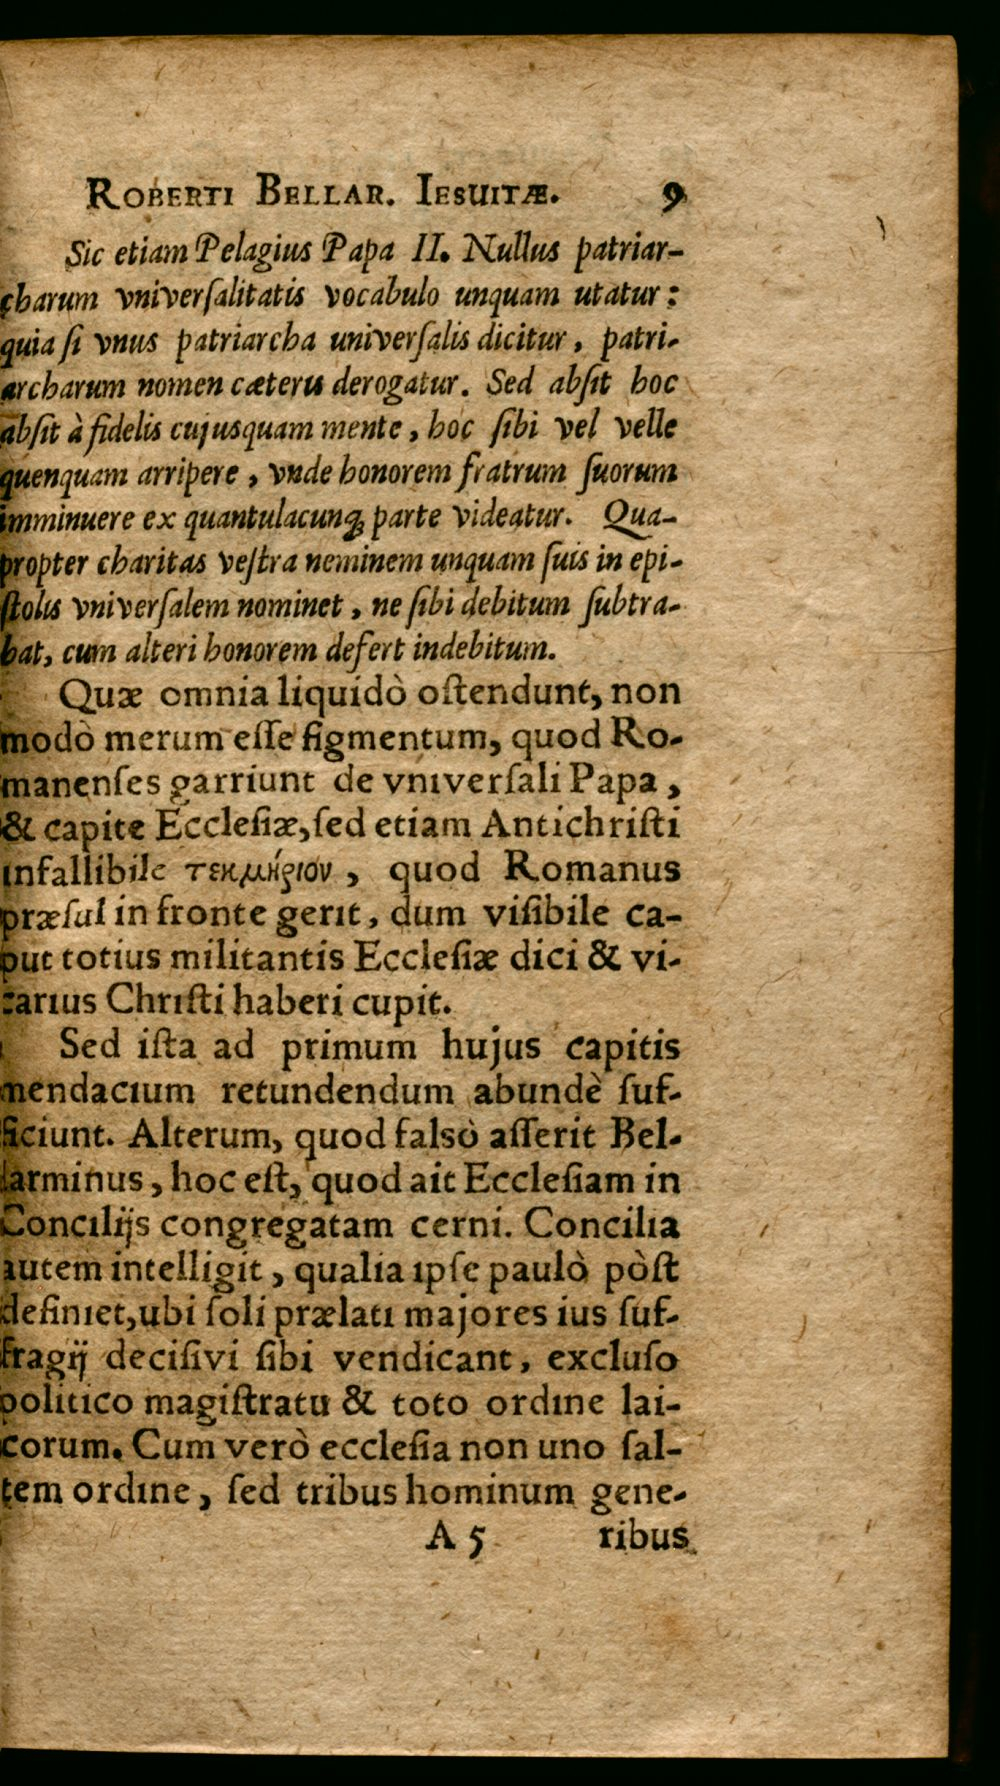 ROBERTI BELLAR. IESUITÆ. 9
Sic etiam Pelagius Papa II. Nullus patriar-
charum vniverſalitatis vocabulo unquam utatur:
quia ſi vnus patriarcha univerſalis dicitur, patri-
archarum nomen cæteris derogatur. Sed abſit hoc
abſit à fidelis cujusquam mente, hoc ſibi vel velle
quenquam arripere, vnde honorem fratrum ſuorum
imminuere ex quantulacunq; parte videatur. Qua-
propter charitas veſtra neminem unquam ſuis in epi-
ſtolis vniverſalem nominet, ne ſibi debitum ſubtra-
hat, cum alteri honorem defert indebitum.
Quæ omnia liquidò oſtendunt, non
modò merum eſſe figmentum, quod Ro-
manenſes garriunt de vniverſali Papa,
& capite Eccleſiæ, ſed etiam Antichriſti
infallibile τεκμήριον, quod Romanus
præſul in fronte gerit, dum viſibile ca-
put totius militantis Eccleſiæ dici & vi-
carius Chriſti haberi cupit.
Sed iſta ad primum hujus capitis
mendacium retundendum abundè ſuf-
ficiunt. Alterum, quod falsò aſſerit Bel-
larminus, hoc eſt, quod ait Eccleſiam in
Concilijs congregatam cerni. Concilia
autem intelligit, qualia ipſe paulò pòſt
definiet, ubi ſoli prælati majores ius ſuf-
fragij deciſivi ſibi vendicant, excluſo
politico magiſtratu & toto ordine lai-
corum. Cum verò eccleſia non uno ſal-
tem ordine, ſed tribus hominum gene-
A 5 ribus